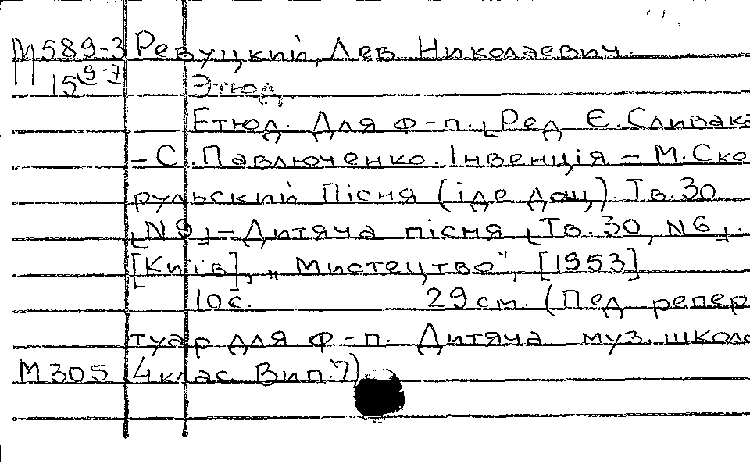 М589-3 Ревуцкий, Лев Николаевич.
15 Этюд.
Етюд. Для ф-п. [Ред Є. Сливак
– С. Павлюченко. Інвенція – М. Ско
рульский Пісня (іде дощ) Тв. 30
[N9] – Дитяча пісня [Тв. 30, N6].
[Київ], „Мистецтво", [1953]
10с. 29см. (Пед. репер
туар для ф-п. Дитяча муз. школа
М305 4 клас. Вип. 7).